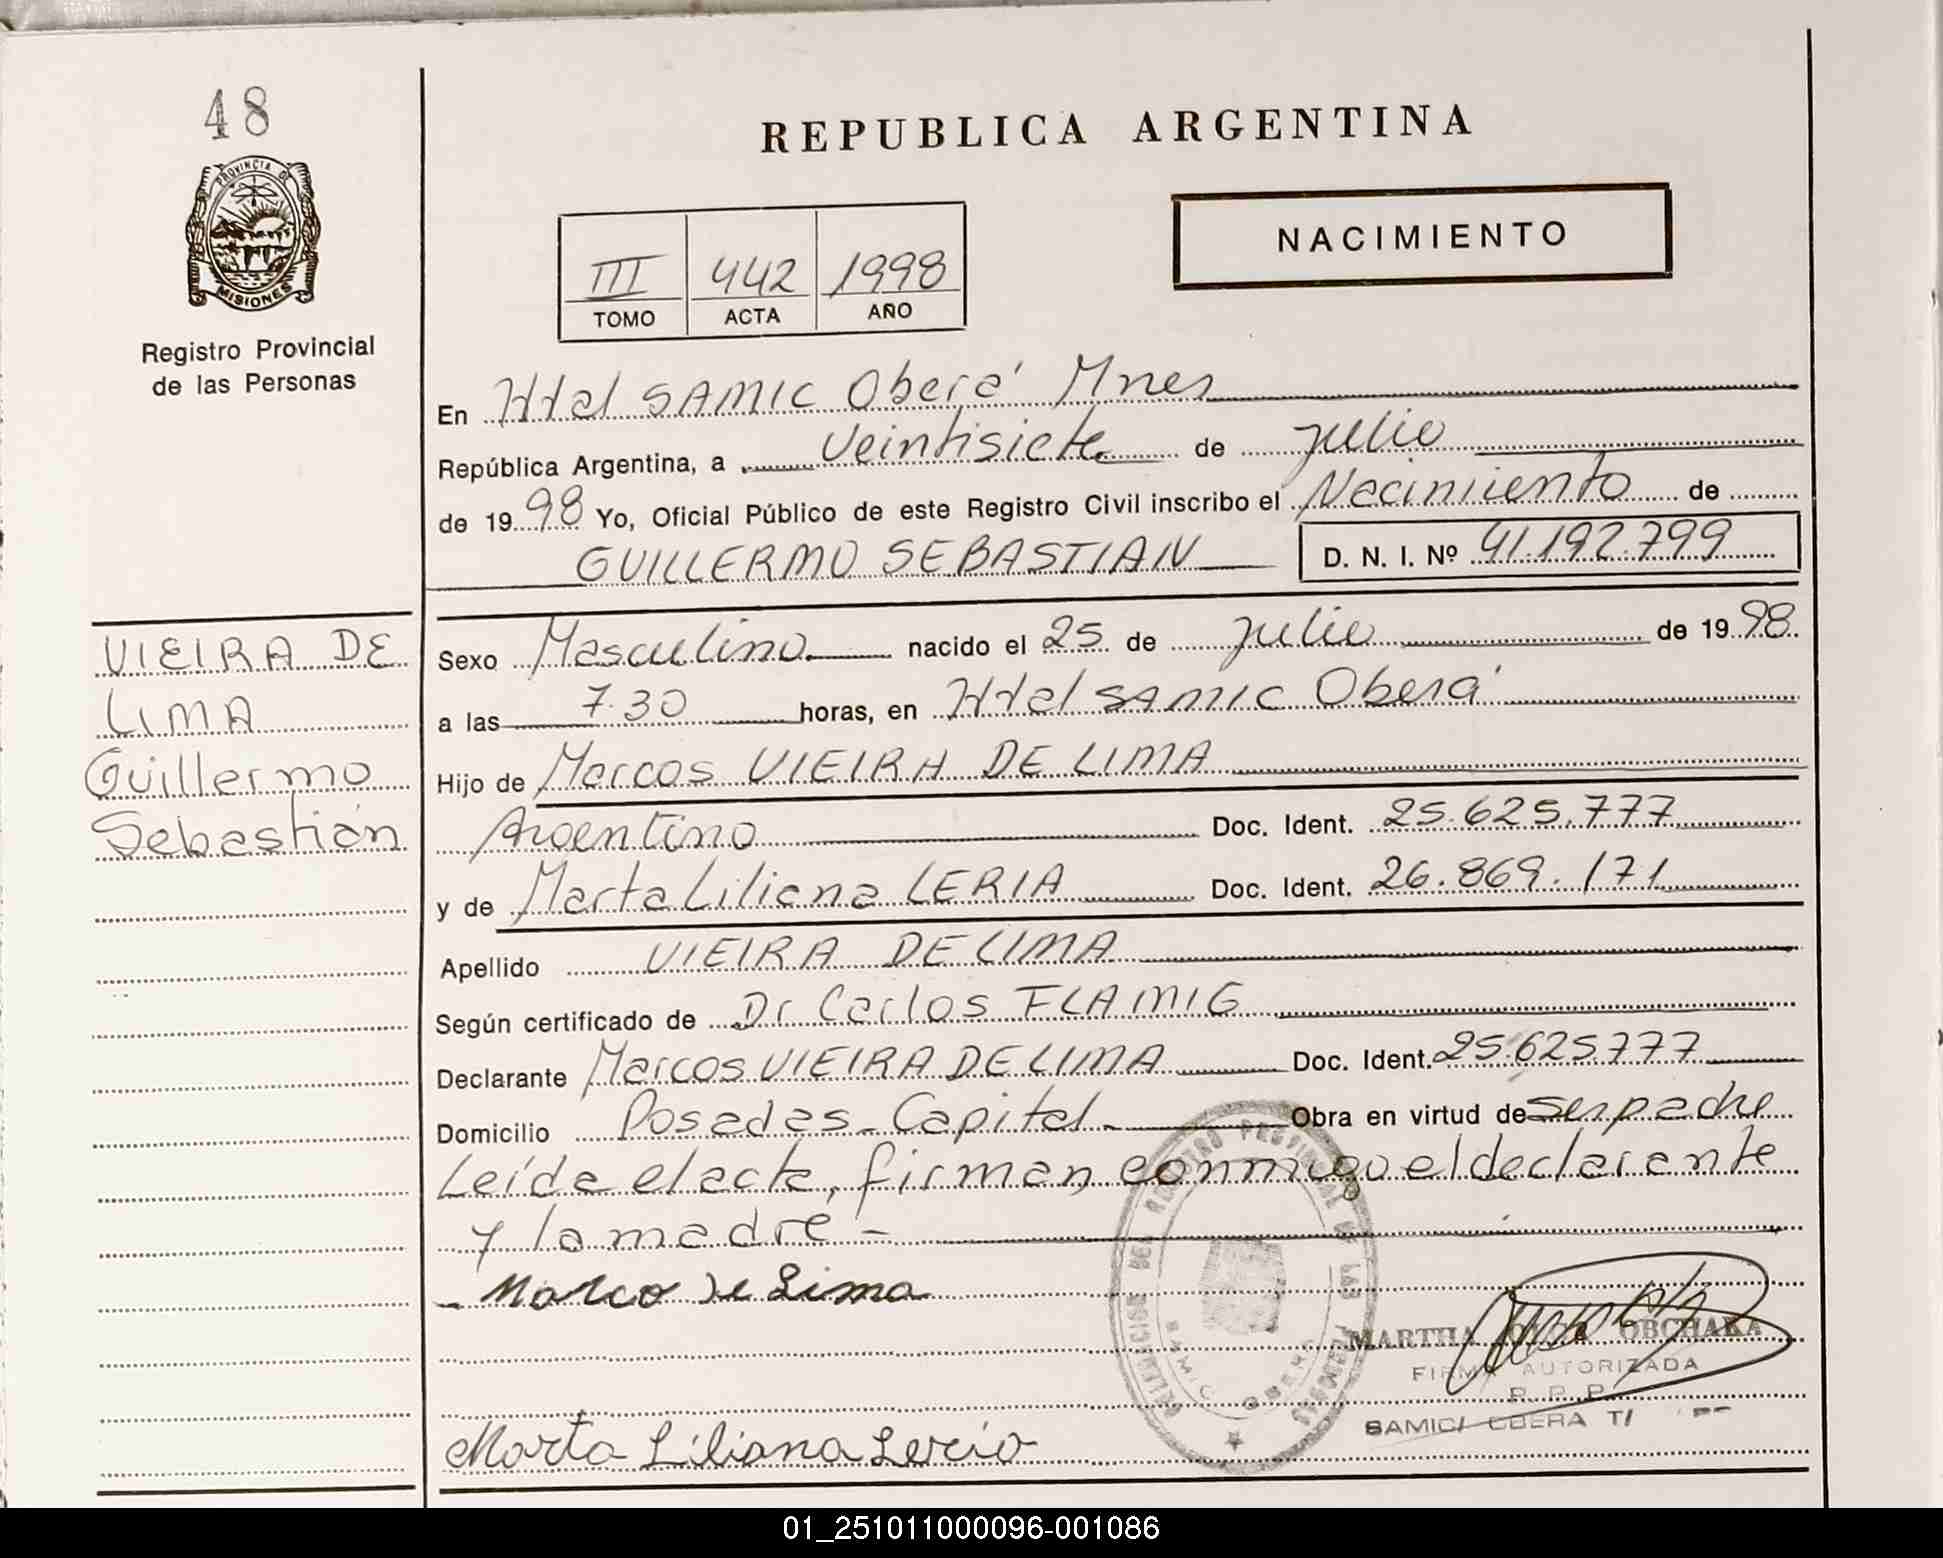 48
PROVINCIA DE
MISIONES
Registro Provincial
de las Personas
REPUBLICA ARGENTINA
NACIMIENTO
III 442 1998
TOMO ACTA AÑO
En Htal SAMIC Oberá Mnes
República Argentina, a veintisiete de julio
de 1998 Yo, Oficial Público de este Registro Civil inscribo el Nacimiento de
GUILLERMO SEBASTIAN D. N. I. Nº 41.192.799
VIEIRA DE
LIMA
Guillermo
Sebastián
Sexo Masculino nacido el 25 de julio de 1998
a las 7.30 horas, en Htal SAMIC Oberá
Hijo de Marcos VIEIRA DE LIMA
Argentino Doc. Ident. 25.625.777
y de Marta Liliana LERIA Doc. Ident. 26.869.171
Apellido VIEIRA DE LIMA
Según certificado de Dr Carlos FLAMIG
Declarante Marcos VIEIRA DE LIMA Doc. Ident. 25.625777
Domicilio Posadas - Capital - Obra en virtud de ser padre
Leída el acta, firman conmigo el declarante
y la madre -
- Marco de Lima
MARTHA OBCHAKA
FIRMA AUTORIZADA
R. P. P.
SAMIC OBERA
Marta Liliana Leria
01_251011000096-001086